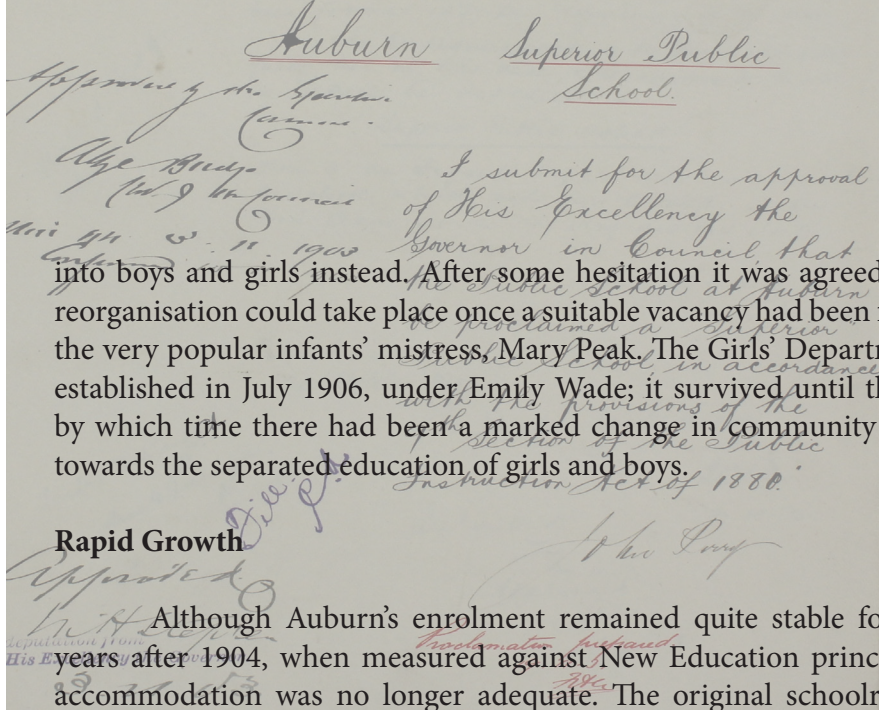 Auburn Superior Public
School.
I submit for the approval
of His Excellency the
Governor in Council, that
the Public School at Auburn
be proclaimed a "Superior"
Public School, in accordance
with the provisions of the
Section of the Public
Instruction Act of 1880.
John Perry
Approved
His Excellency the Governor
Proclamation prepared
into boys and girls instead. After some hesitation it was agreed
reorganisation could take place once a suitable vacancy had been
the very popular infants’ mistress, Mary Peak. The Girls’ Departm
established in July 1906, under Emily Wade; it survived until th
by which time there had been a marked change in community
towards the separated education of girls and boys.
Rapid Growth
Although Auburn’s enrolment remained quite stable fo
years after 1904, when measured against New Education princ
accommodation was no longer adequate. The original schoolr